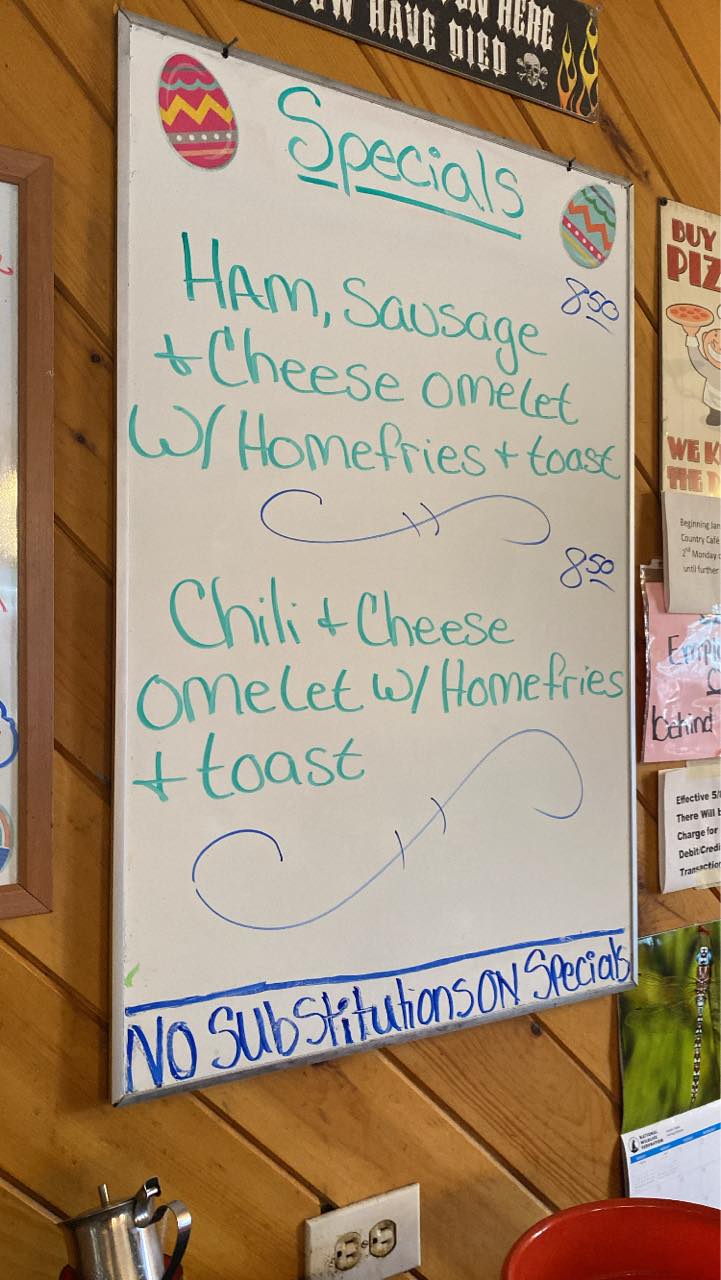 ON HERE
HAVE DIED
Specials
8 50
HAM, Sausage
+ Cheese omelet
W/ Homefries + toast
8 50
Chili + Cheese
omelet w/ Homefries
+ toast
No Substitutions ON Specials
BUY
WE
Beginning
Country Café
2nd Monday
until further
behind
Effective
There Will
Charge for
Debit/Credit
NATIONAL
WILDLIFE
FEDERATION